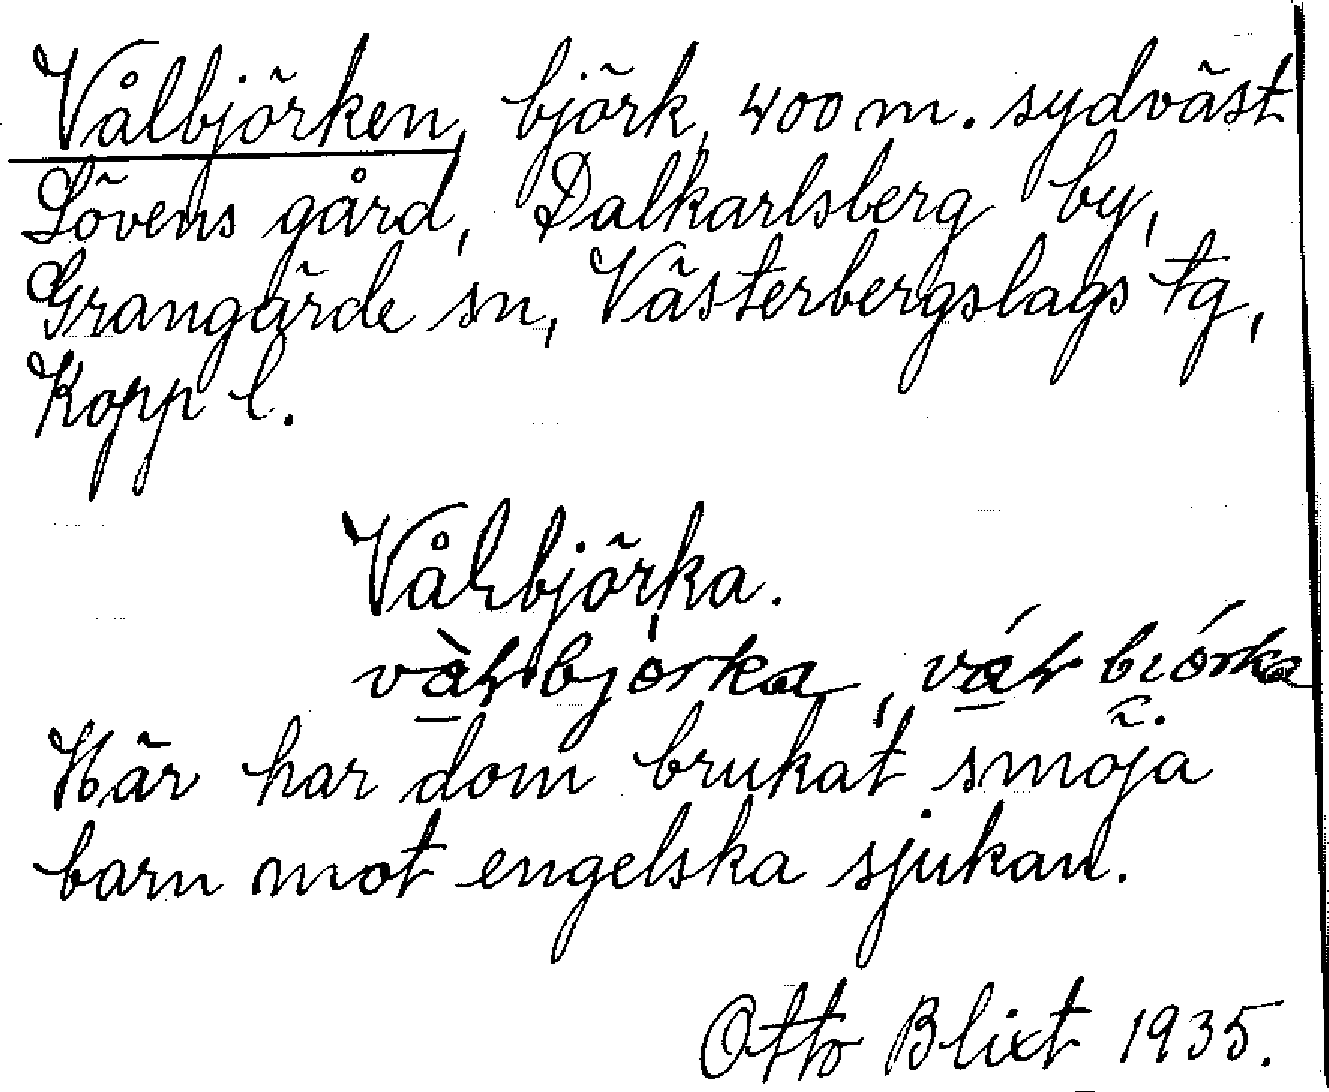 Vålbjörken, björk, 400 m. sydväst
Lövens gård, Dalkarlsberg by,
Grangärde sn, Västerbergslags tg,
Kopp l.
Vålbjörka.
Här har dom brukat smöja
barn mot engelska sjukan.
Otto Blixt 1935.